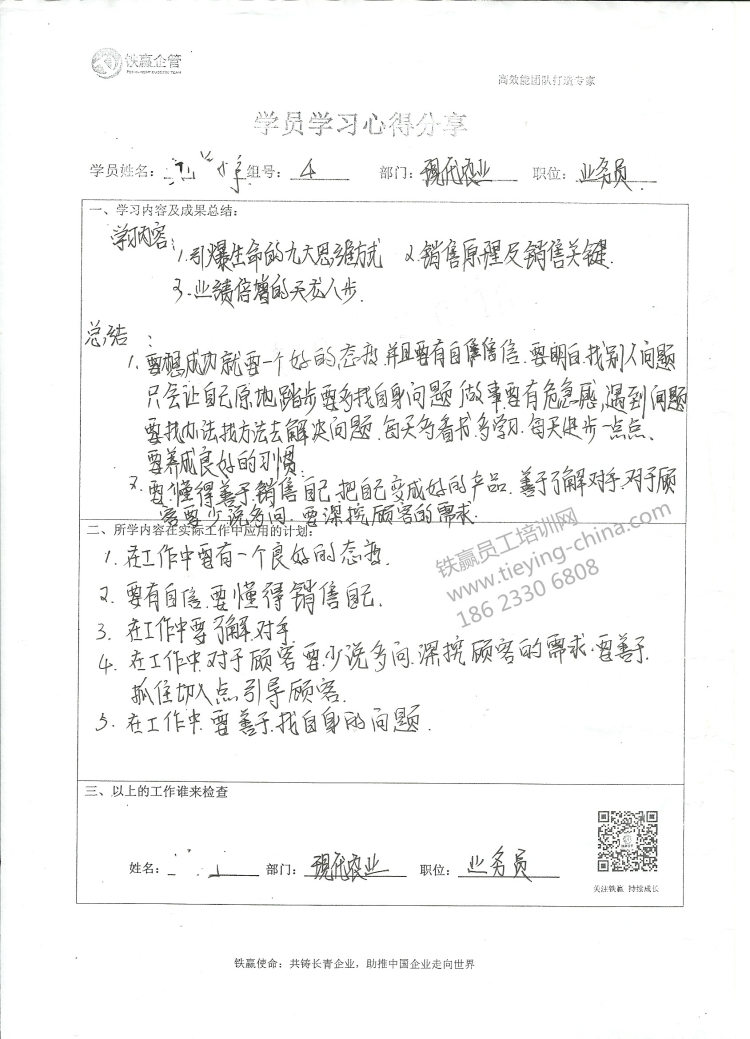 铁赢企管
高效能团队打造专家
学员学习心得分享
学员姓名： 组号： 4 部门： 现代农业 职位： 业务员
一、学习内容及成果总结：
学习内容：
1. 引爆生命的九大思维方式 2. 销售原理及销售关键.
3. 业绩倍增的天龙八步.
总结：
1. 要想成功就要一个好的态度.并且要有自信.要明白.找别人问题
只会让自己原地踏步要多找自身问题.做事要有危急感.遇到问题
要找办法找方法去解决问题.每天多看书.多学习.每天进步一点点.
要养成良好的习惯.
2. 要懂得善于销售自己.把自己变成好的产品.善于了解对手.对于顾
客要少说多问.要深挖顾客的需求.
二、所学内容在实际工作中应用的计划：
1. 在工作中要有一个良好的态度.
2. 要有自信.要懂得销售自己.
3. 在工作中要了解对手.
4. 在工作中.对于顾客要少说多问.深挖顾客的需求.要善于
抓住切入点引导顾客.
5. 在工作中.要善于找自身的问题.
铁赢员工培训网
www.tieying-china.com
186 2330 6808
三、以上的工作谁来检查
姓名： 部门： 现代农业 职位： 业务员
关注铁赢 持续成长
铁赢使命：共铸长青企业，助推中国企业走向世界